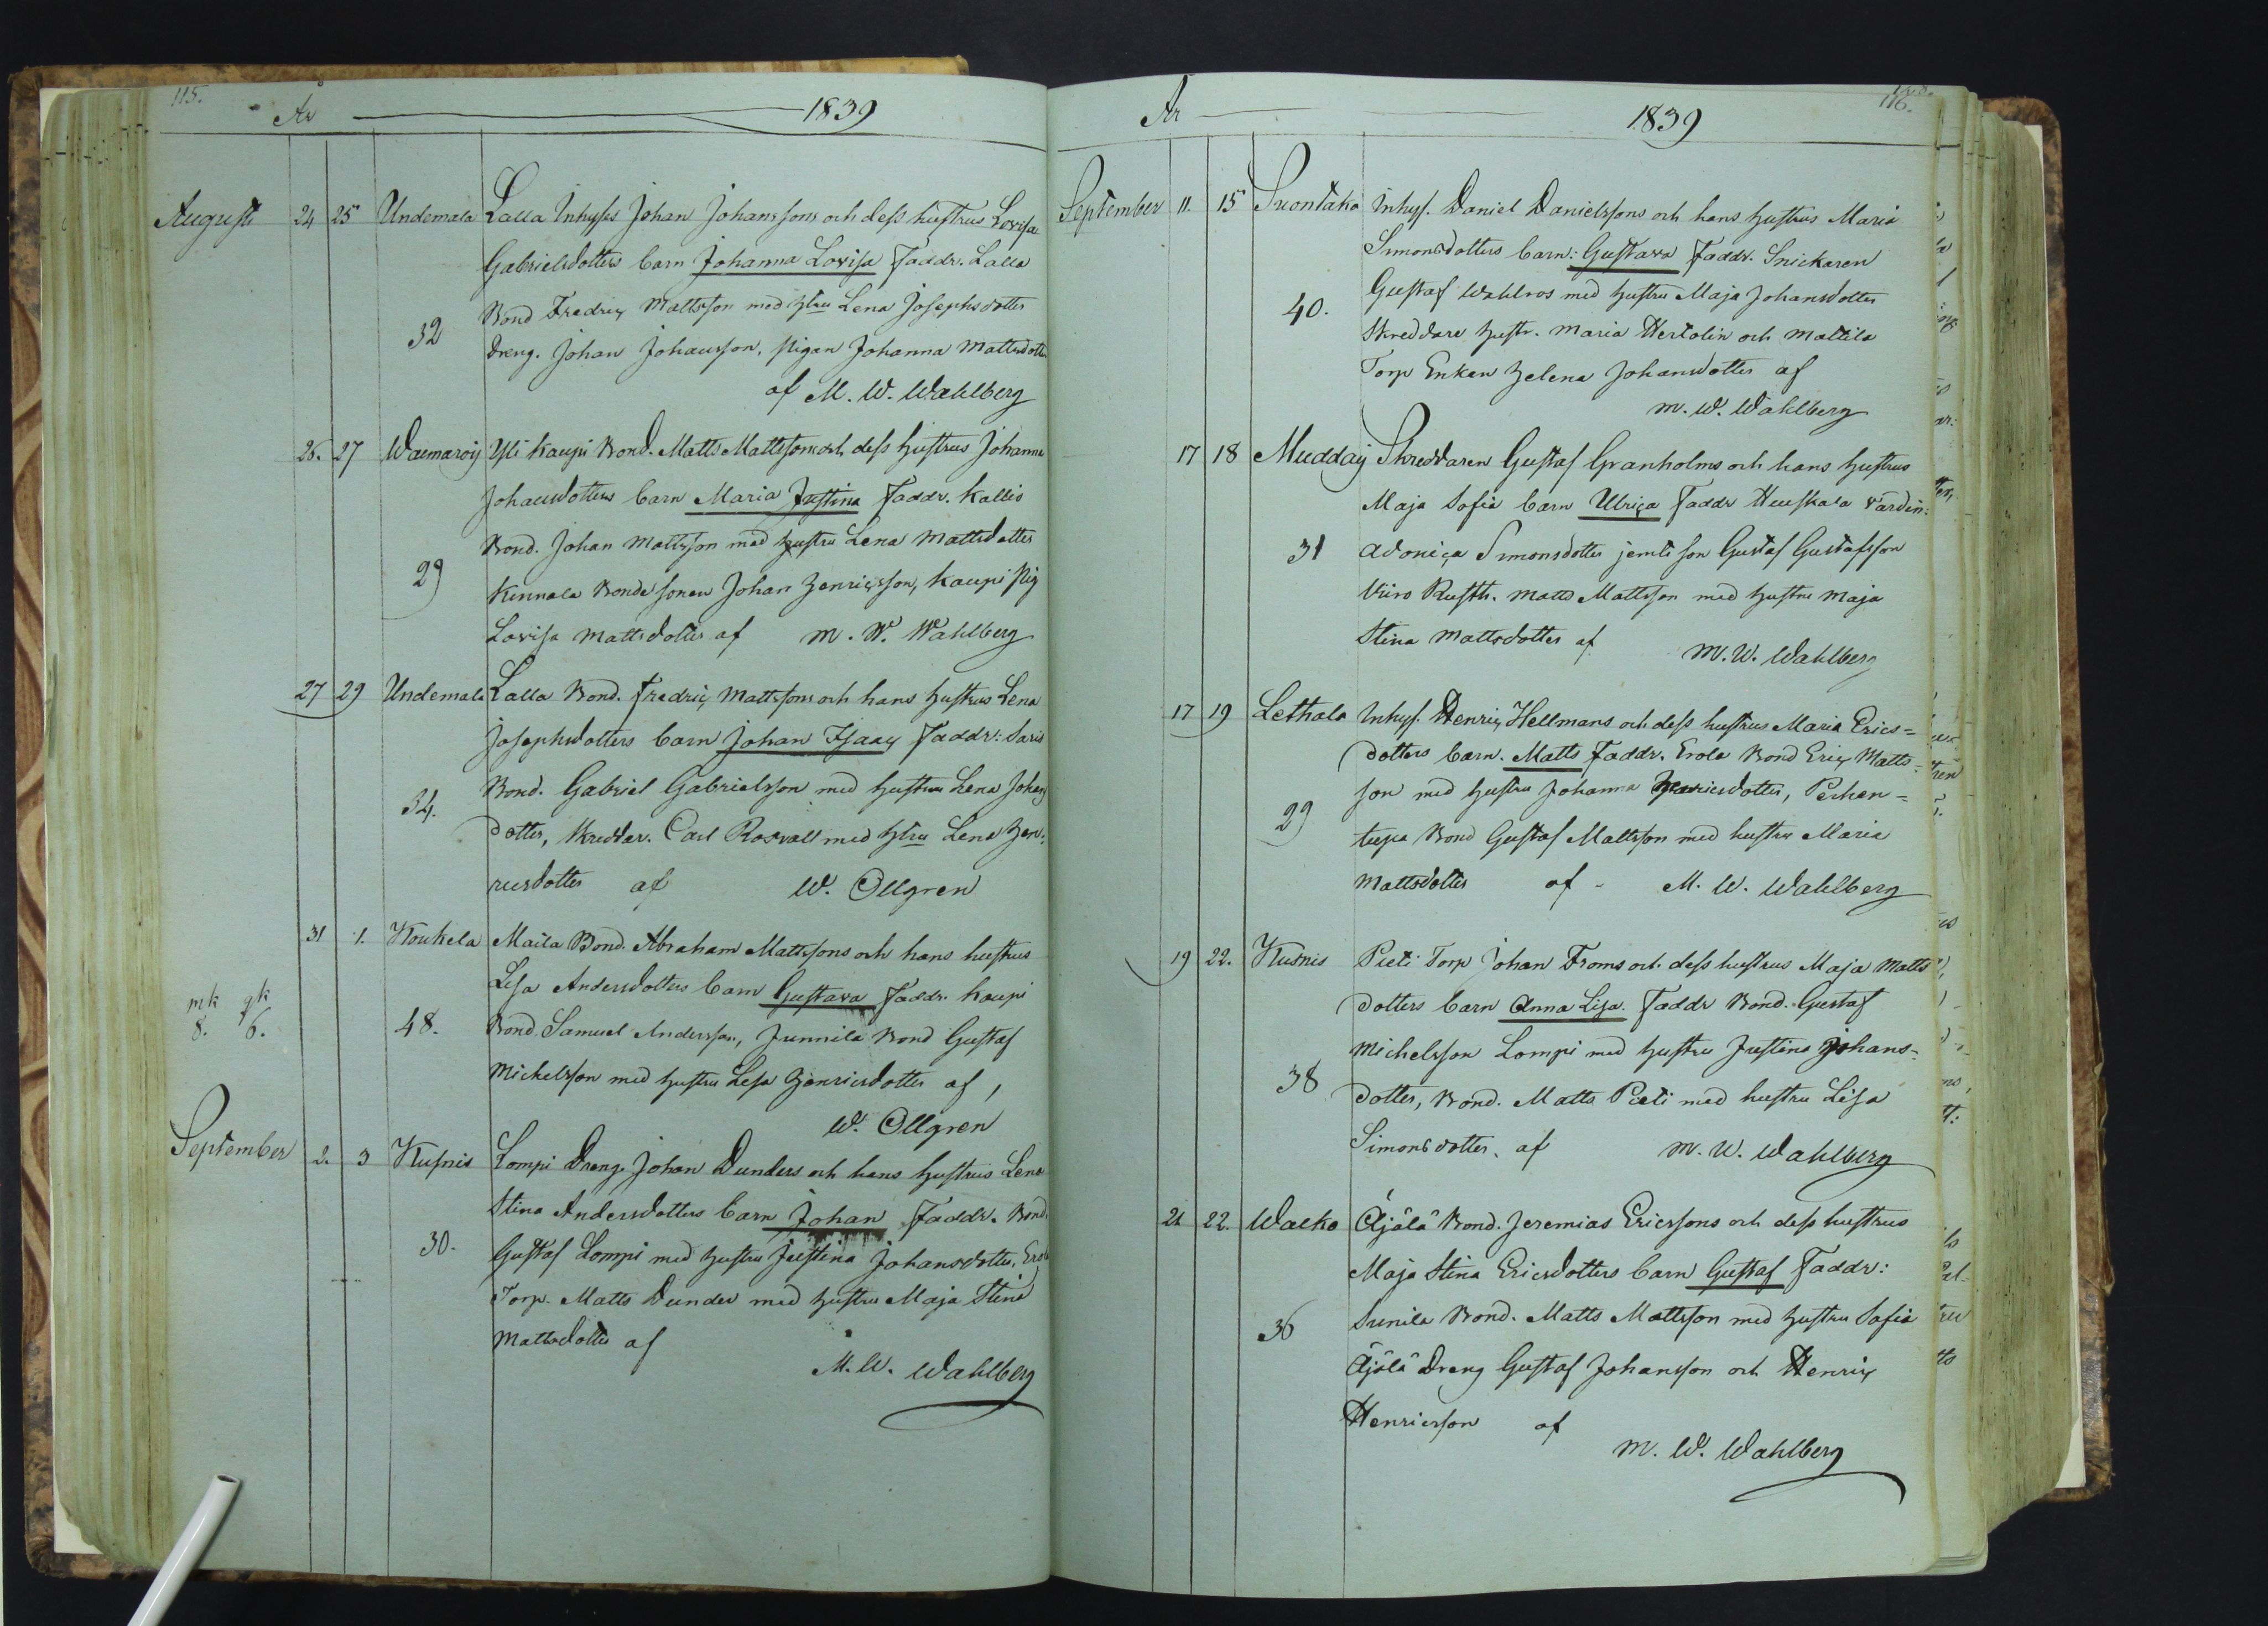 115.
År 1839
Augusti 24 25 Undemala Lalla Inhyses Johan Johanssons och dess hustrus Lovisa
Gabrielsdotters barn Johanna Lovisa Faddr. Lalla
Bond Fredric Mattsson med Hstru Lena Josephsdotter
32
Dreng. Johan Johansson, Pigan Johanna Mattsdotter
af M. W. Wahlberg
26. 27 Waemaroij Yli Kaupi Bond. Matts Mattssons och dess Hustrus Johanna
Johansdotters barn Maria Justina Faddr. Kallis
Bond. Johan Mattsson med Hustru Lena Mattsdotter
29
Kinnala Bondesonen Johan Henricsson, Kaupi Pig
Lovisa Mattsdotter af M. W. Wahlberg
27 29 Undemala Lalla Bond. Fredric Mattssons och hans Hustrus Lena
Josephsdotters barn Johan Isaac Faddr: Saris
Bond. Gabriel Gabrielsson med Hustru Lena Johans
34.
dotter, Skreddar. Carl Rosvall med Hstru Lena Hen:
ricsdotter af W. Ollgren
31 1. Koukela Maila Bond. Abraham Mattssons och hans hustrus
Lisa Andersdotters barn Gustava Faddr. Kaupi
mk qk
8. 6.
48.
Bond. Samuel Andersson, Junnila Bond Gustaf
Michelsson med Hustru Lisa Henricsdotter af,
W. Ollgren
September 2. 3 Kusnis Lompi Dreng. Johan Dunders och hans Hustrus Lena
Stina Andersdotters barn Johan Faddr. Bond.
30.
Gustaf Lompi med Hustru Justina Johansdotter, Erola
Torp. Matts Dunder med Hustru Maja Stina
Mattsdotter af
M. W. Wahlberg
116.
År 1839
September 11. 15 Suontaka Inhys. Daniel Danielssons och hans Hustrus Maria
Simonsdotters barn: Gustava Faddr. Snickaren
Gustaf Wahlros med Hustru Maja Johansdotter
40.
Skreddare Hustr. Maria Hertolin och Mattila
Torp Enkan Helena Johansdotter af
M. W. Wahlberg
17 18 Muddaij Skreddaren Gustaf Granholms och hans Hustrus
Maja Sofia barn Ulrica Faddr Huuskala Värdin:
31
Adonica Simonsdotter jemte son Gustaf Gustafsson
Viiro Rusth. Matts Mattsson med Hustru Maja
Stina Mattsdotter af M. W. Wahlberg
17 19 Lethala Inhys. Henric Hellmans och dess hustrus Maria Erics=
dotters barn. Matts Faddr. Erola Bond Eric Matts=
son med Hustru Johanna Henricsdotter, Perhen=
29
tupa Bond Gustaf Mattsson med hustru Maria
Mattsdotter af - M. W. Wahlberg
19 22. Kusnis Pieti Torp Johan Froms och dess hustrus Maja Matts
dotters barn Anna Lisa. Faddr Bond. Gustaf
Michelsson Lompi med Hustru Justina Johans=
38
dotter, Bond. Matts Pieti med hustru Lisa
Simonsdotter. af M. W. Wahlberg
21 22. Walko Äjälä Bond. Jeremias Ericssons och dess hustrus
Maja Stina Ericsdotters barn Gustaf Faddr:
36
Sunila Bond. Matts Mattsson med Hustru Sofia
Äjälä Dreng Gustaf Johansson och Henric
Henricsson af
M. W. Wahlberg